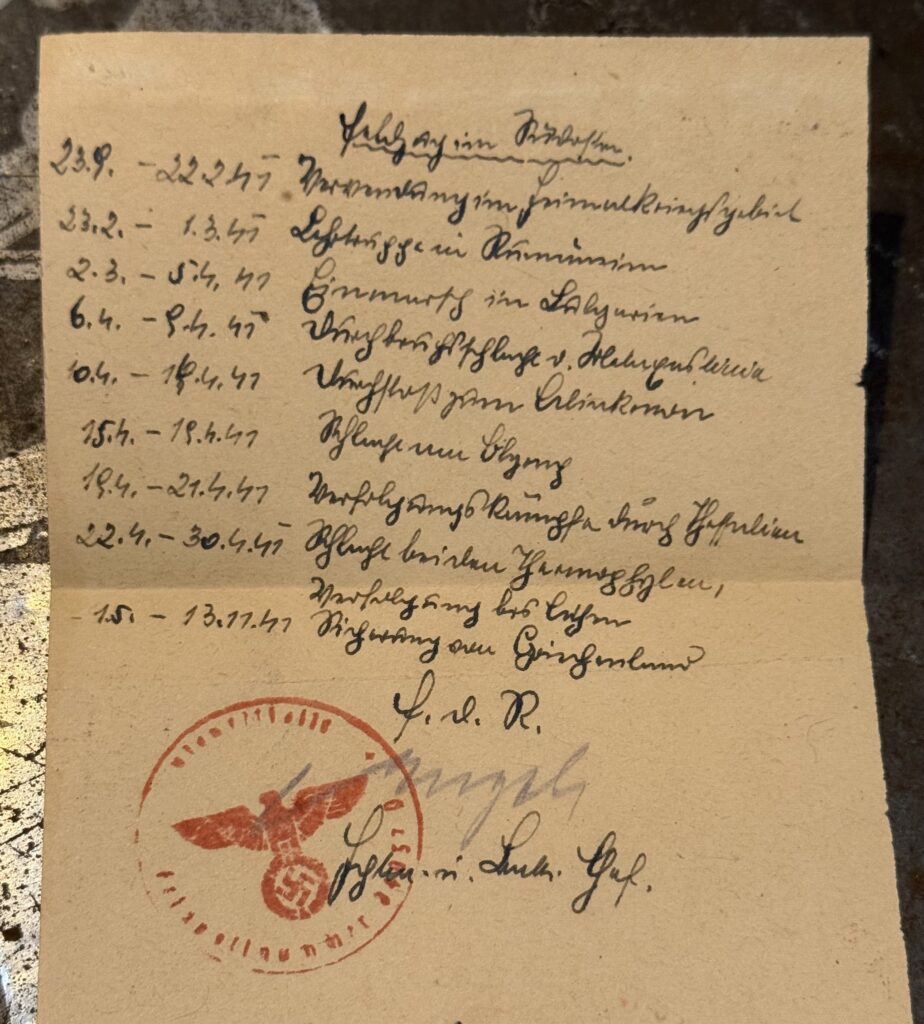 Feldzug im Südosten.
23.9. – 22.2.41 Verwendung im Heimatkriegsgebiet
23.2. – 1.3.41 Lehrtruppe in Rumänien
2.3. – 5.4.41 Einmarsch in Bulgarien
6.4. – 9.4.41 Durchbruchsschlacht d.
10.4. – 14.4.41 Durchstoß zum
15.4. – 19.4.41 Schlacht am Olymp
19.4. – 21.4.41 Verfolgungskämpfe durch Thessalien
22.4. – 30.4.41 Schlacht bei den Thermophylen,
Verfolgung bis Athen
1.5. – 13.11.41 Sicherung von Griechenland
F. d. R.
Hptm. u. Battr. Chef.
Dienststelle
Feldpostnummer